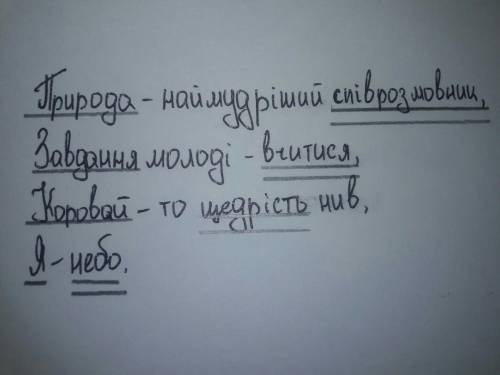 Природа - наймудріший співрозмовниц,
Завдання молоді - вчитися,
Коровай - то щедрість нив,
Я - небо.